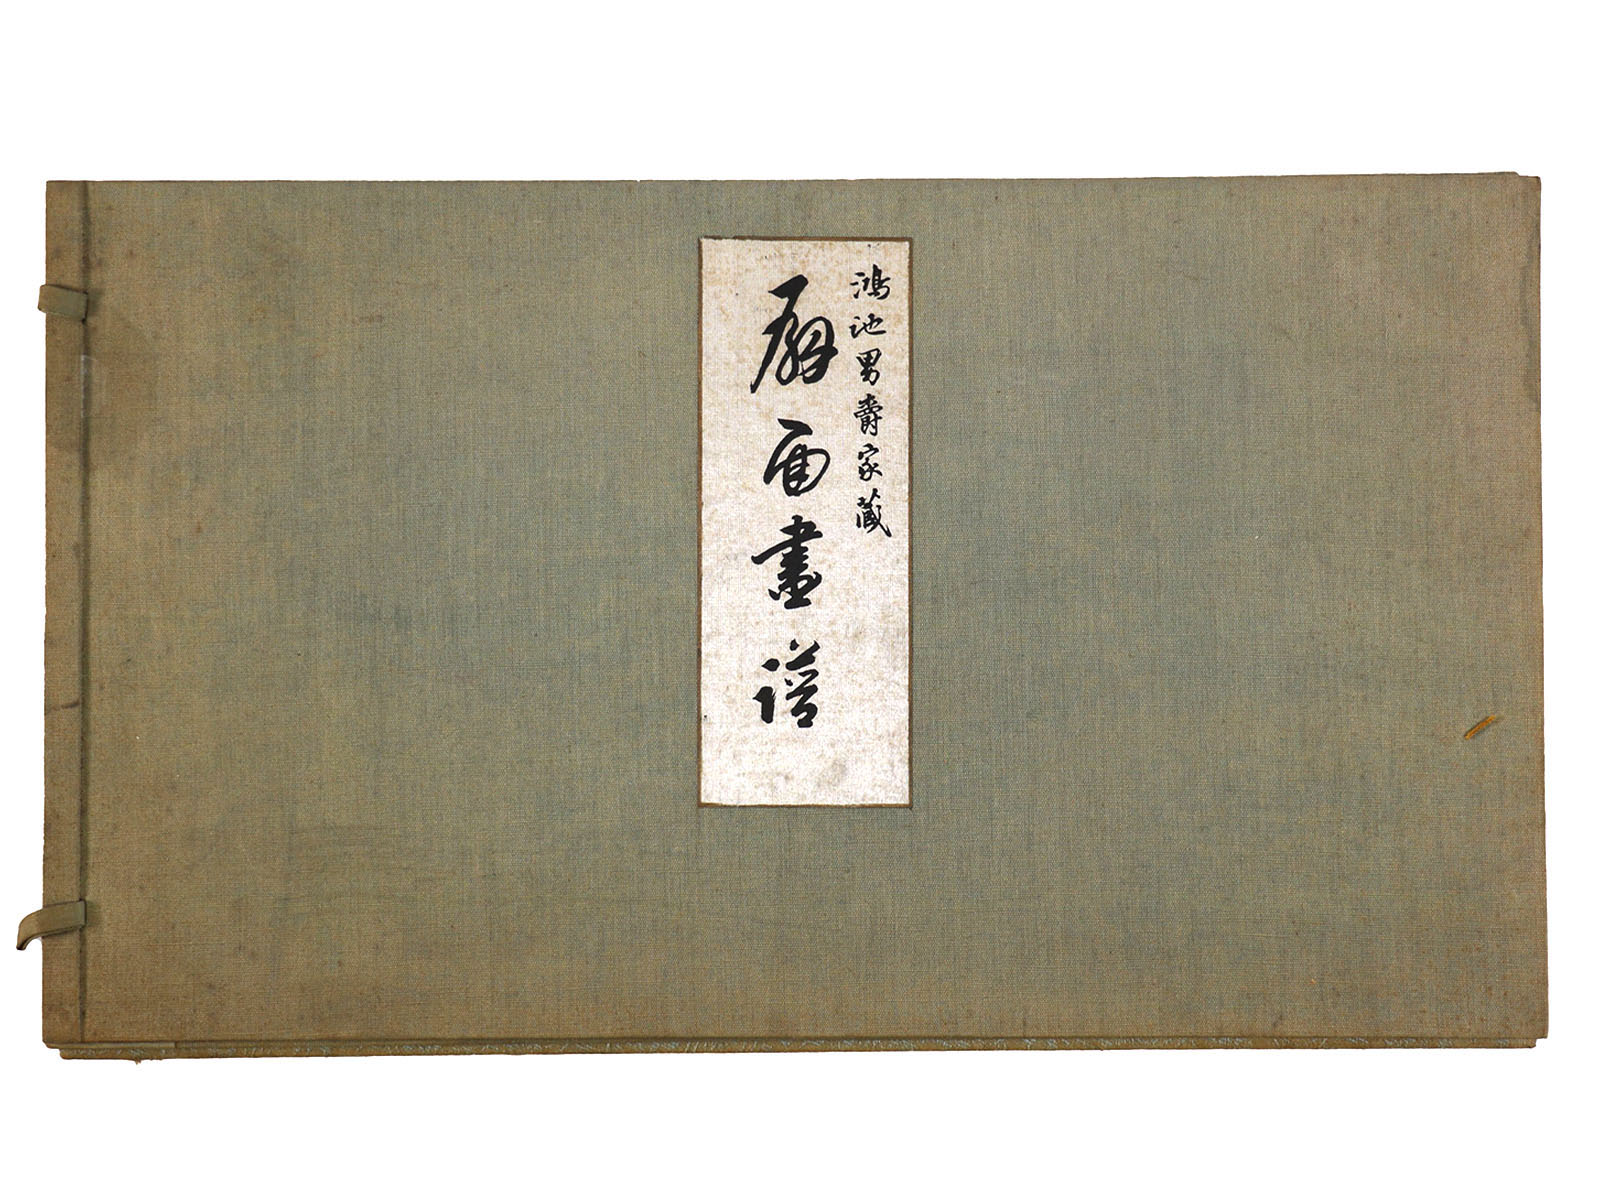 鴻池男爵家蔵
扇面畫譜